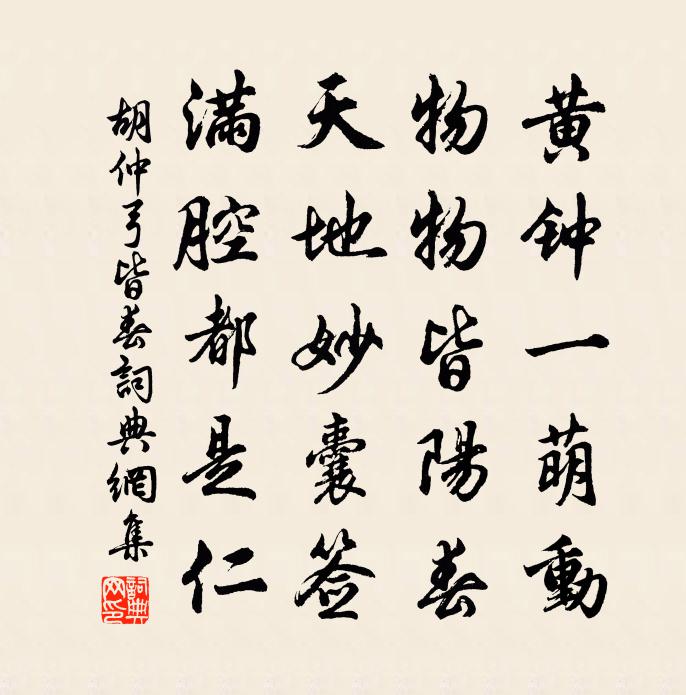 黄钟一萌動
物物皆陽春
天地妙囊签
满腔都是仁
胡仲弓皆春詞典網集
詞典网印